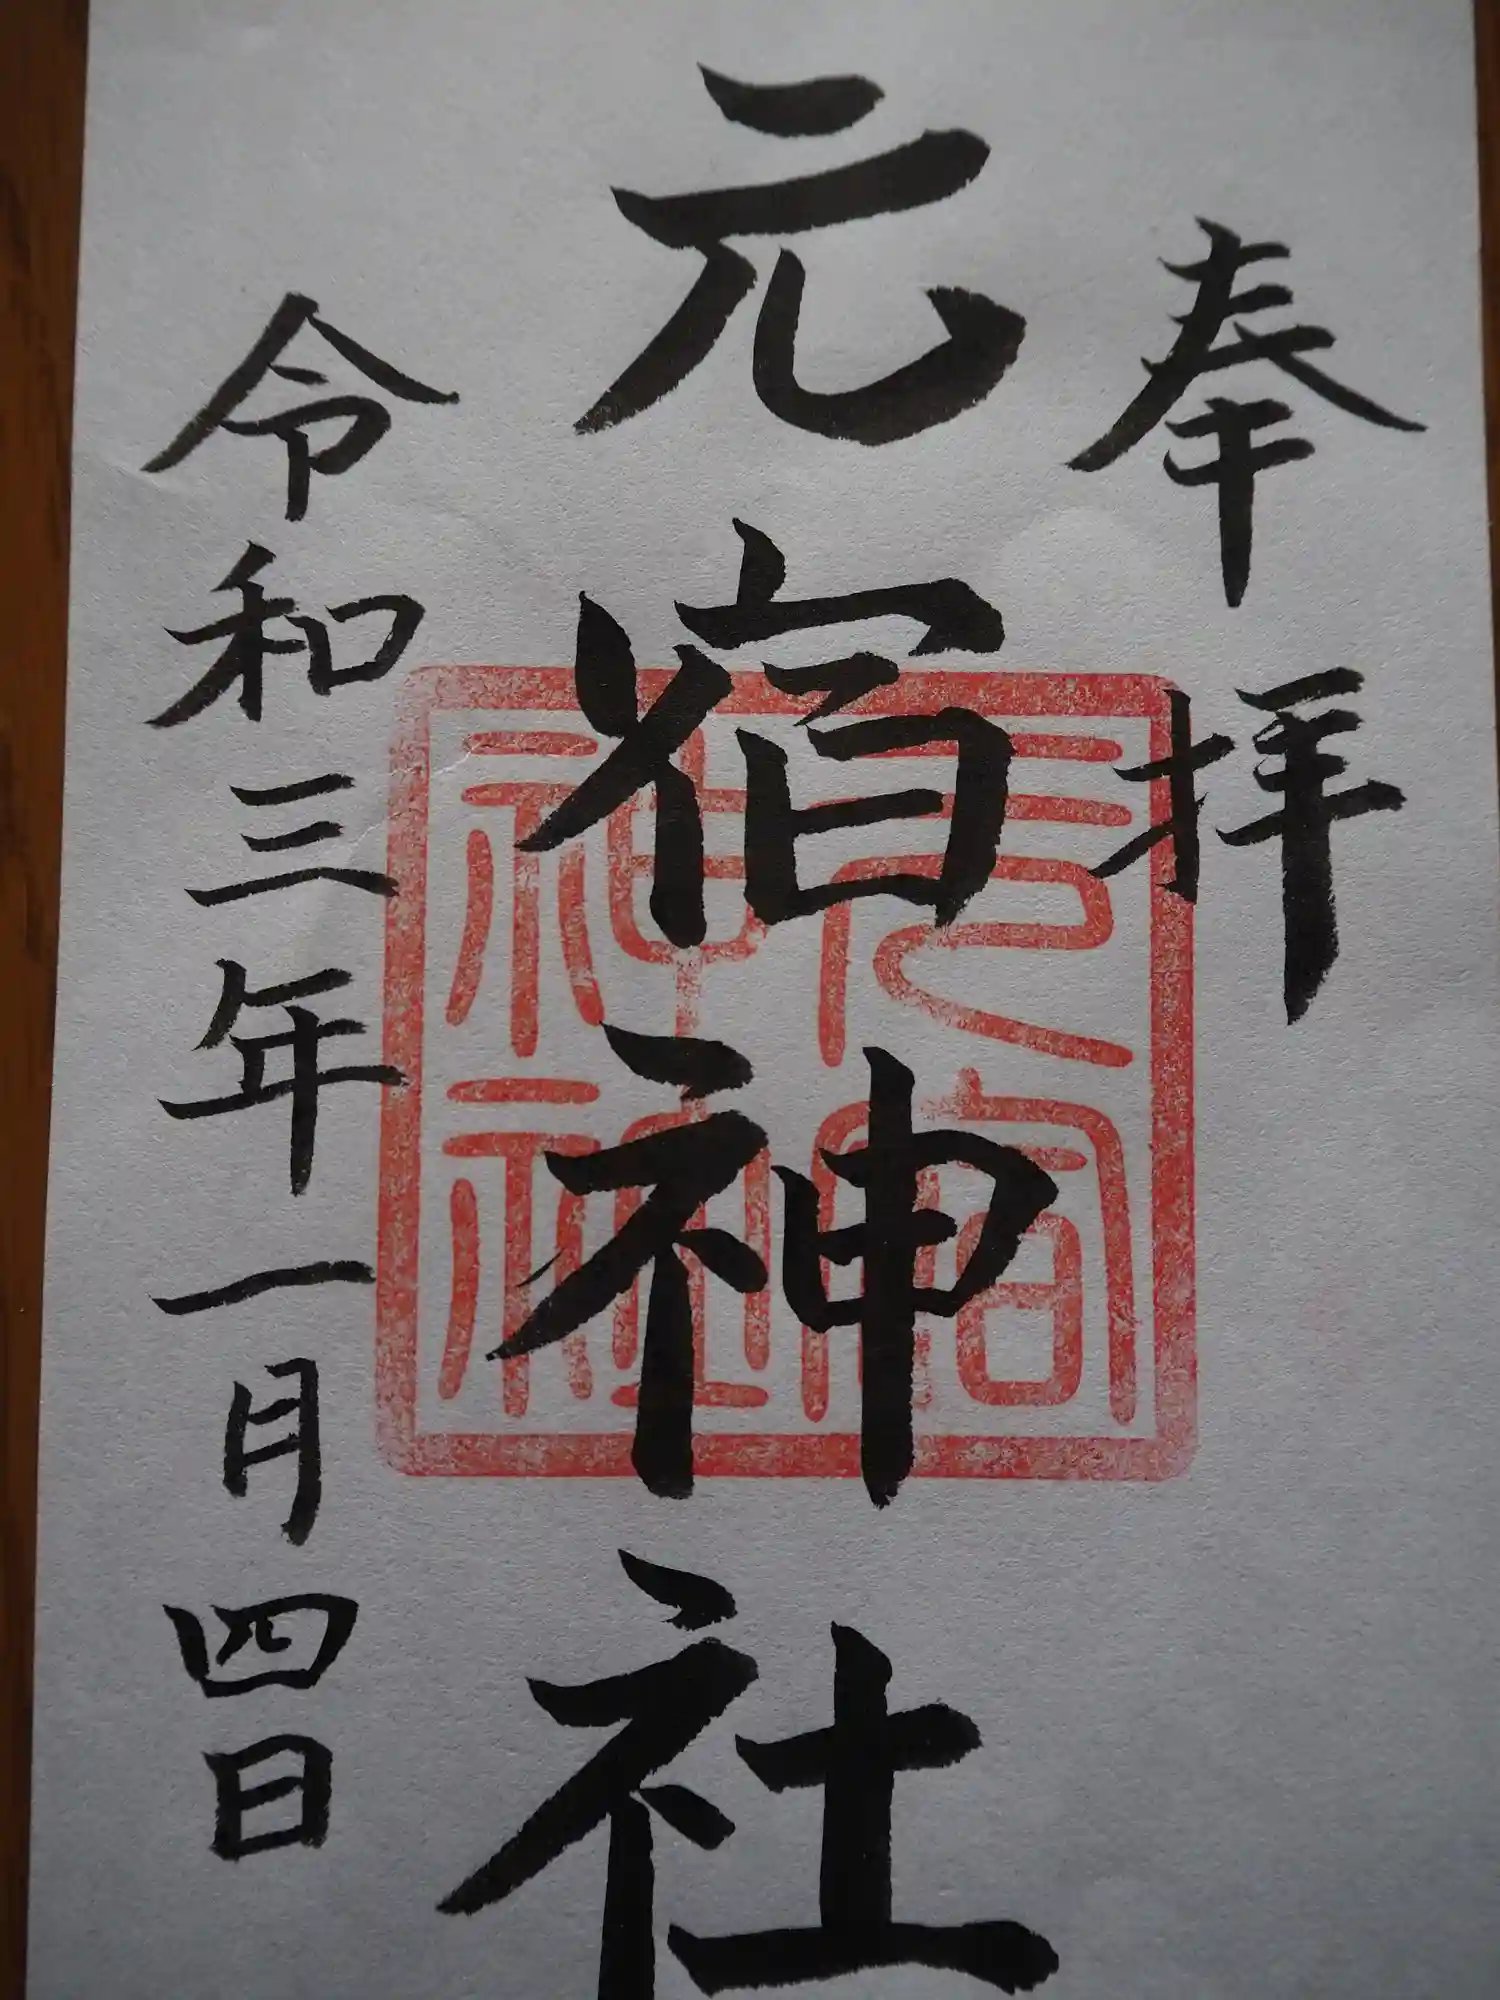 奉拝
元宿神社
元宿神社
令和三年一月四日